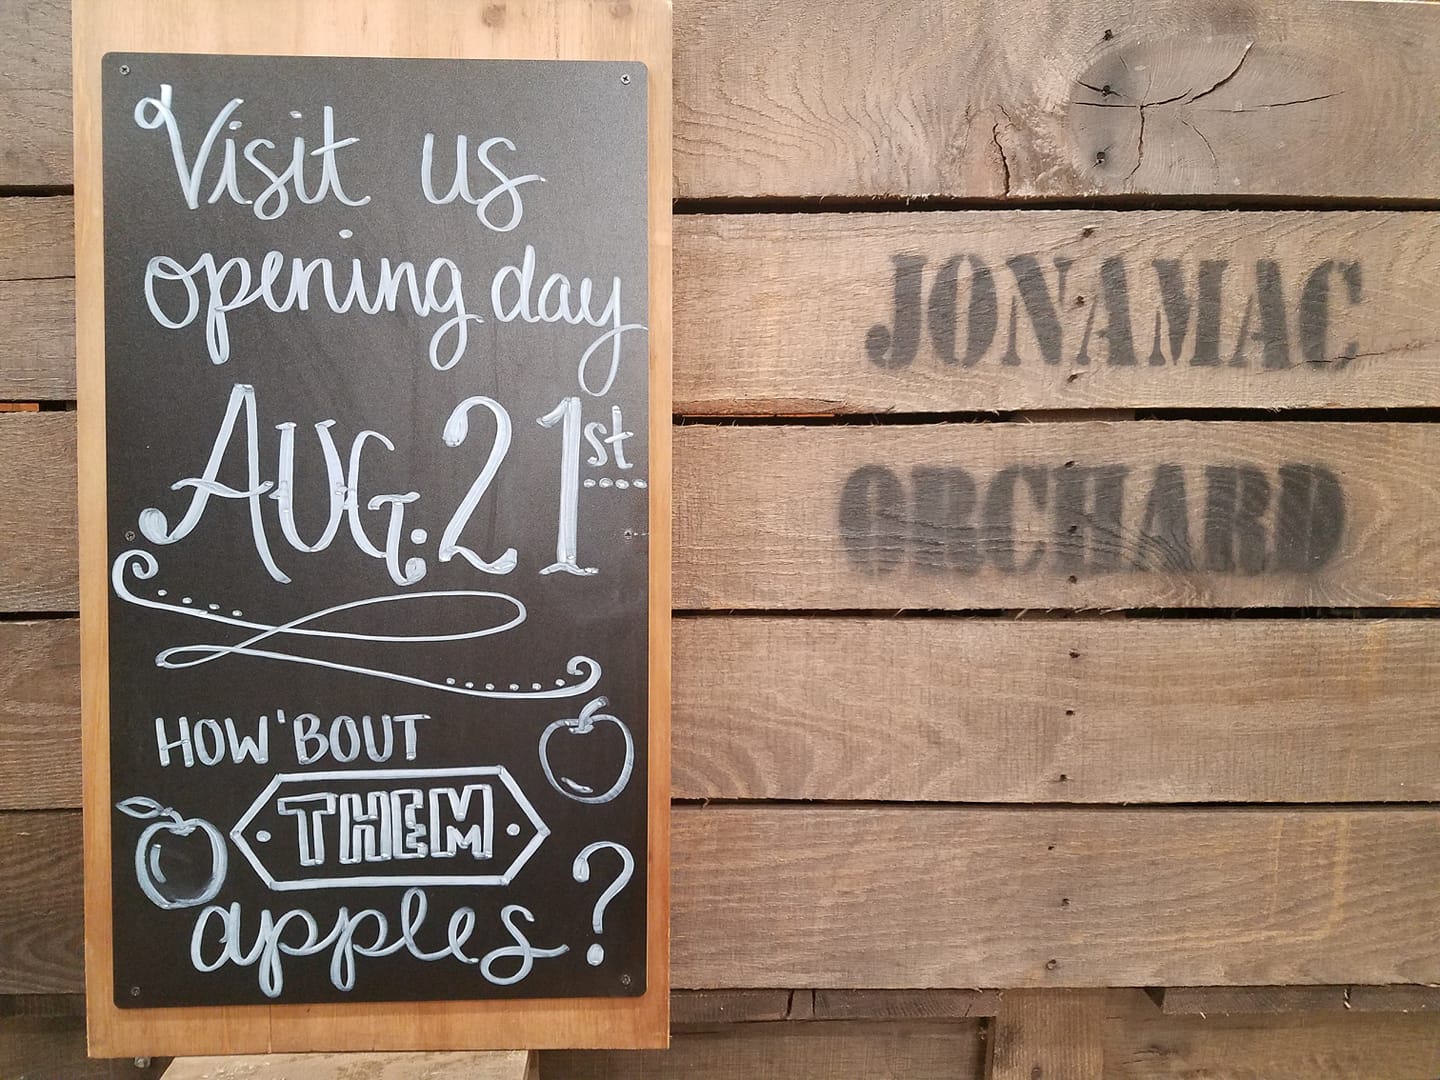 Visit us
opening day
AUG. 21st
HOW 'BOUT
THEM
apples?
JONAMAC
ORCHARD